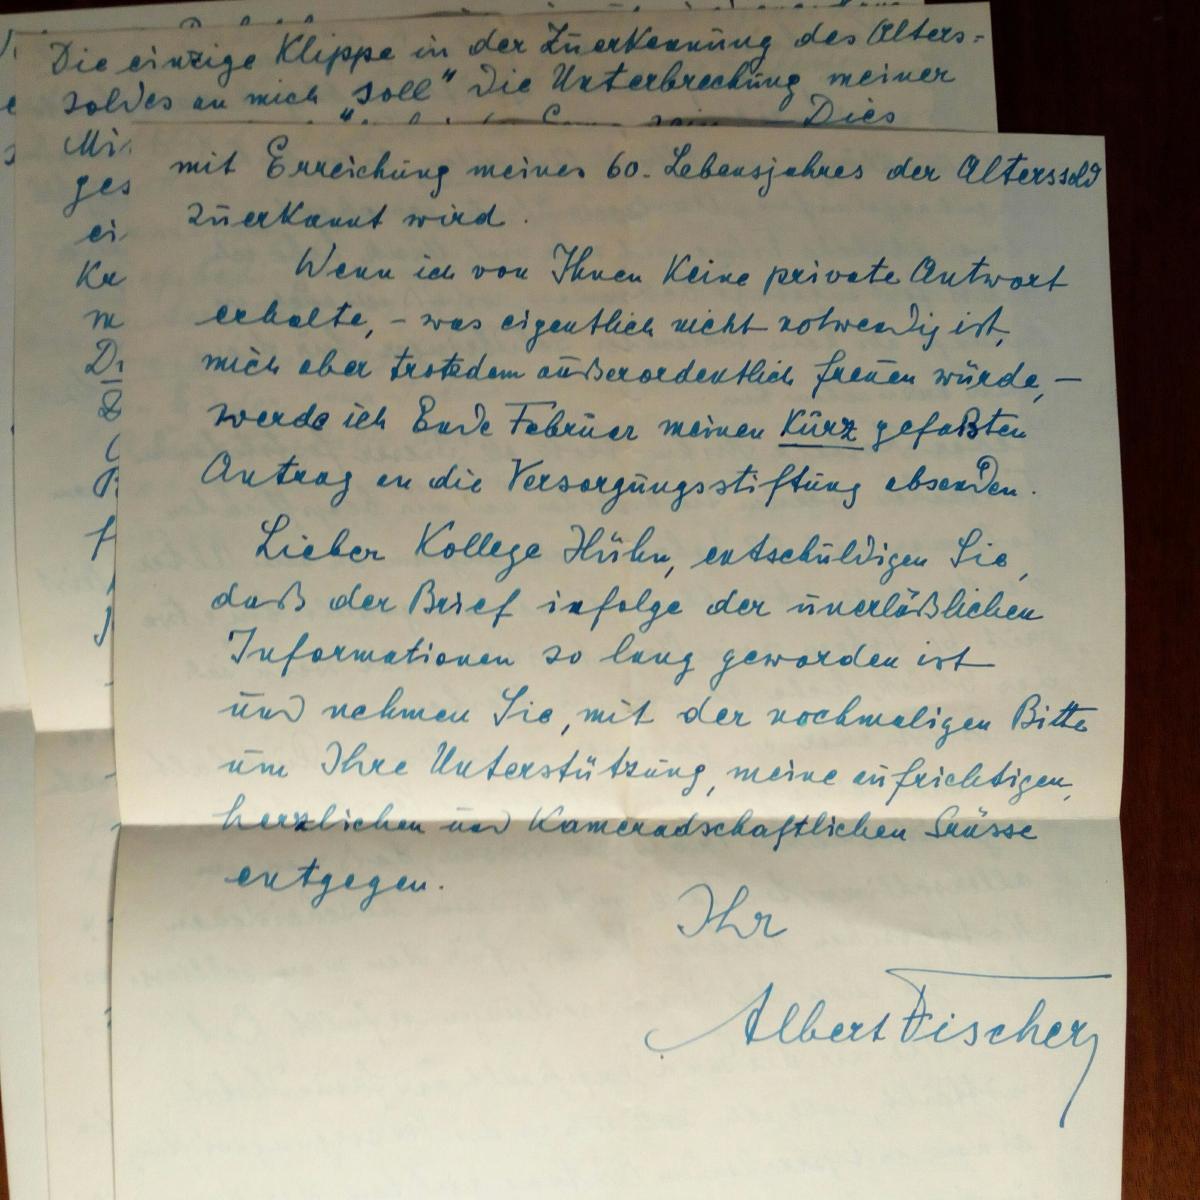 Die einzige Klippe in der Zuerkennung des Alters-
soldes an mich "soll" die Unterbrechung meiner
Dies
Mi
ges
ei
Kr
m
mit Erreichung meines 60. Lebensjahres der Alterssold
zuerkannt wird.
Wenn ich von Ihnen keine private Antwort
erhalte, – was eigentlich nicht notwendig ist,
mich aber trotzdem außerordentlich freuen würde, –
werde ich Ende Februar meinen kurz gefaßten
Antrag an die Versorgungsstiftung absenden.
Lieber Kollege Hühn, entschuldigen Sie,
daß der Brief infolge der unerläßlichen
Informationen so lang geworden ist
und nehmen Sie, mit der nochmaligen Bitte
um Ihre Unterstützung, meine aufrichtigen,
herzlichen und kameradschaftlichen Grüsse
entgegen.
Ihr
Albert Fischer